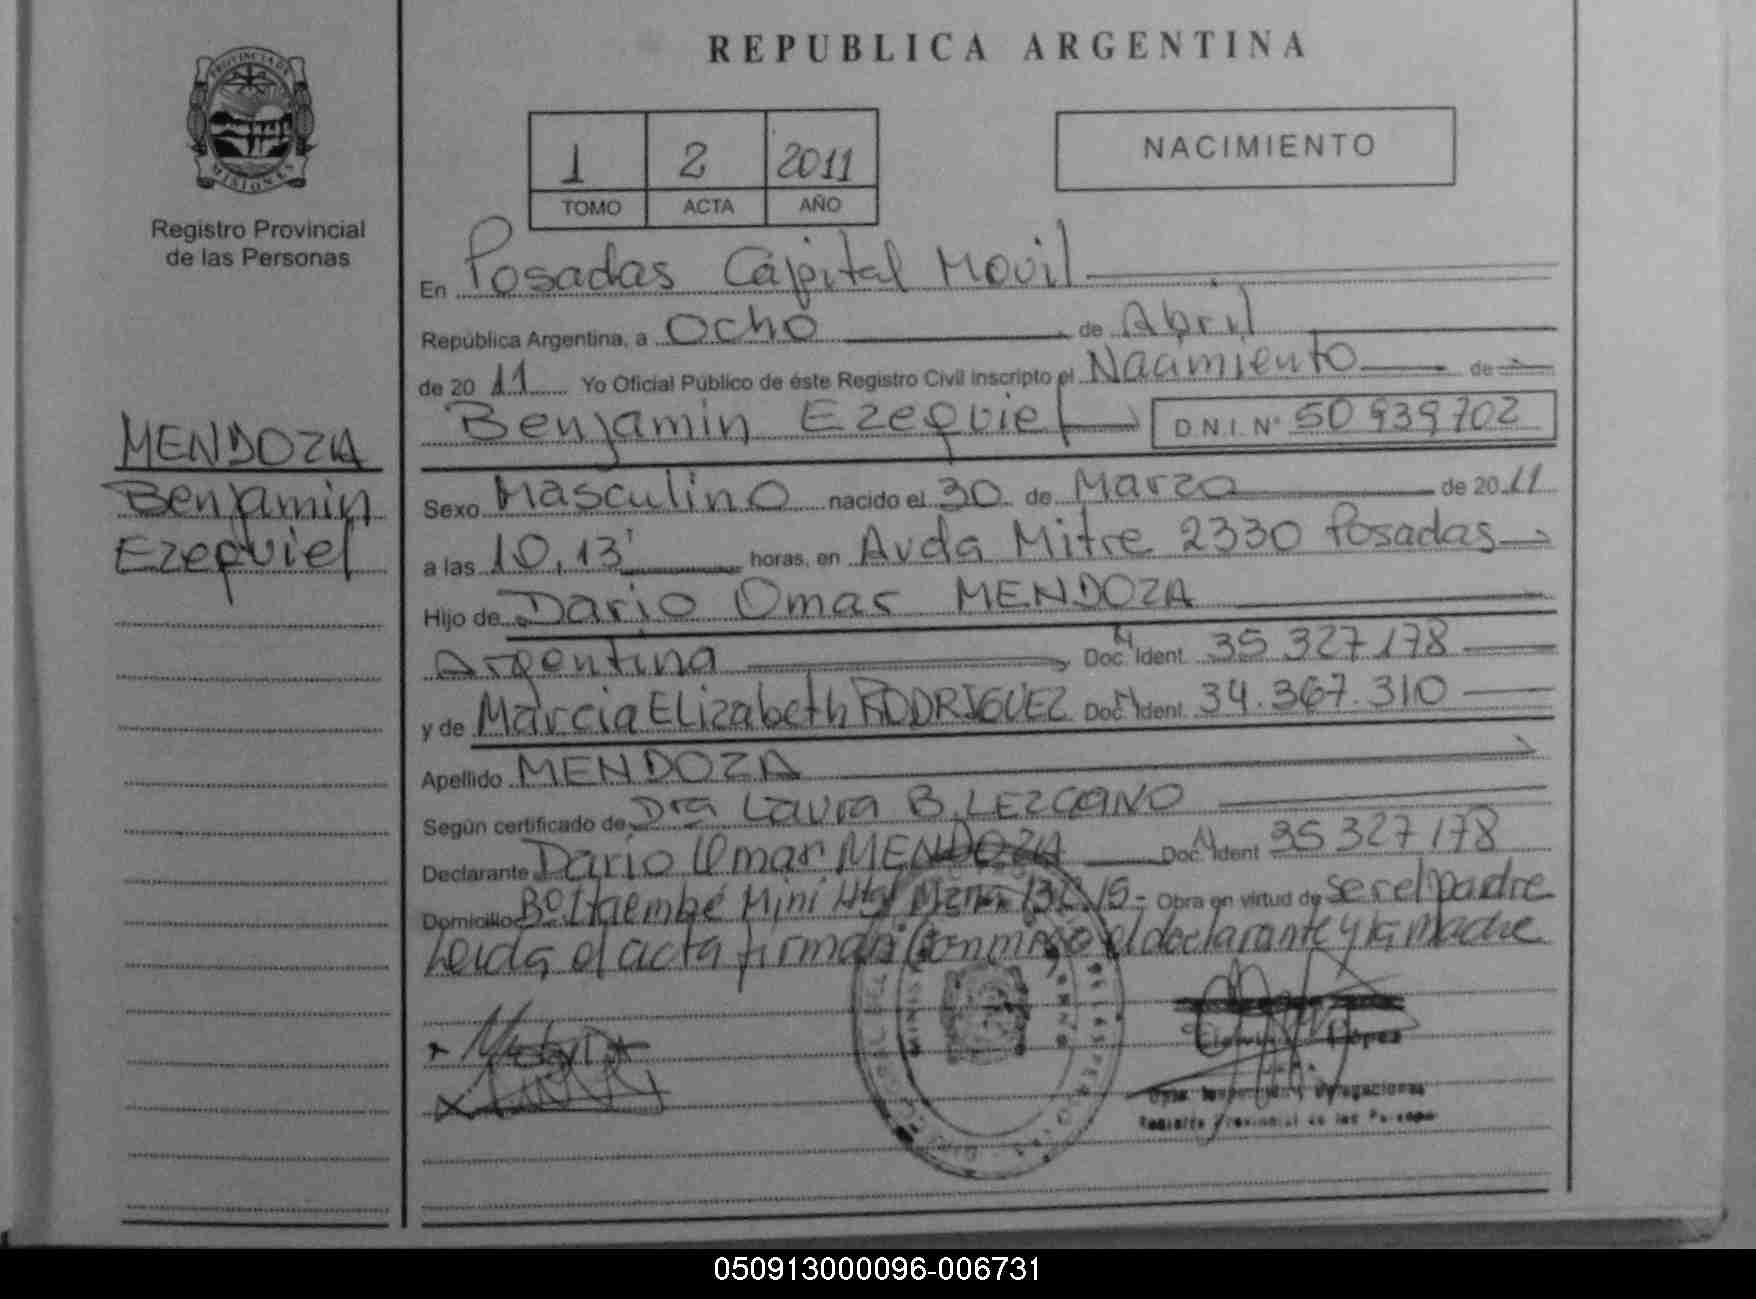 REPUBLICA ARGENTINA
PROVINCIA DE
MISIONES
Registro Provincial
de las Personas
1 2 2011
TOMO ACTA AÑO
NACIMIENTO
En Posadas Capital Movil
República Argentina, a Ocho de Abril
de 20 11 Yo Oficial Público de éste Registro Civil inscripto el Nacimiento de
Benjamin Ezequiel D.N.I. N° 50 939702
MENDOZA
Benjamin
Ezequiel
Sexo Masculino nacido el 30 de Marzo de 2011
a las 10,13' horas, en Avda Mitre 2330 Posadas
Hijo de Dario Omar MENDOZA
Argentina Doc. Ident. 35 327 178
y de Marcia Elizabeth RODRIGUEZ Doc. Ident. 34.367.310
Apellido MENDOZA
Según certificado de Dra Laura B. LEZCANO
Declarante Dario Omar MENDOZA Doc. Ident 35 327 178
Domicilio Bo Itaembé Mini Obra en virtud de ser el padre
Leida el acta firman conmigo el declarante y la madre
López
Registro Provincial de las Personas
050913000096-006731